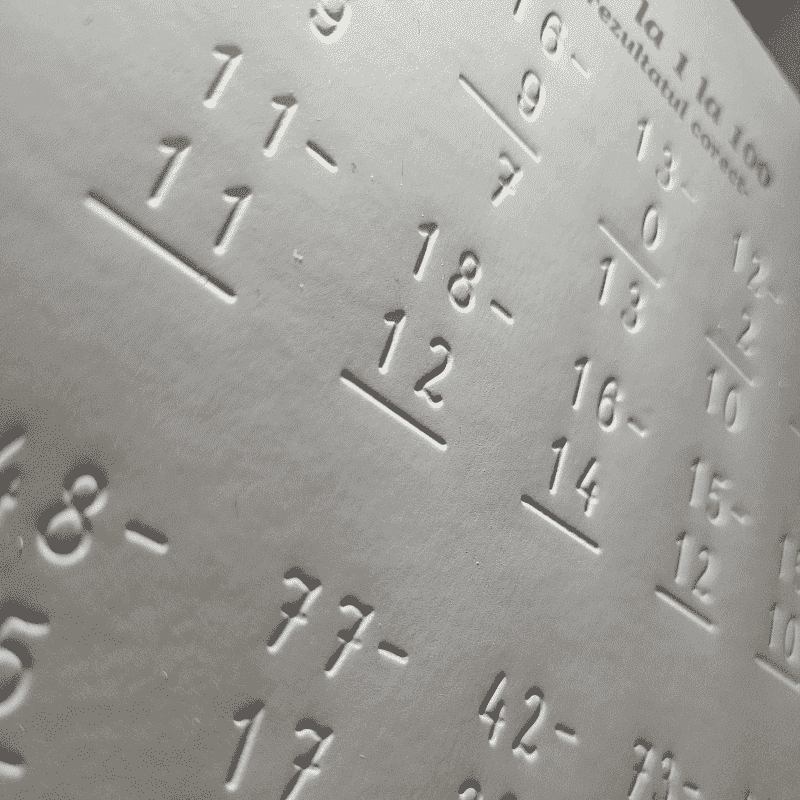 la 1 la 100
rezultatul corect.
9
16-
9
7
13-
0
13
12-
2
10
11-
11
18-
12
16-
14
15-
12
10
8-
5
77-
17
42-
73-